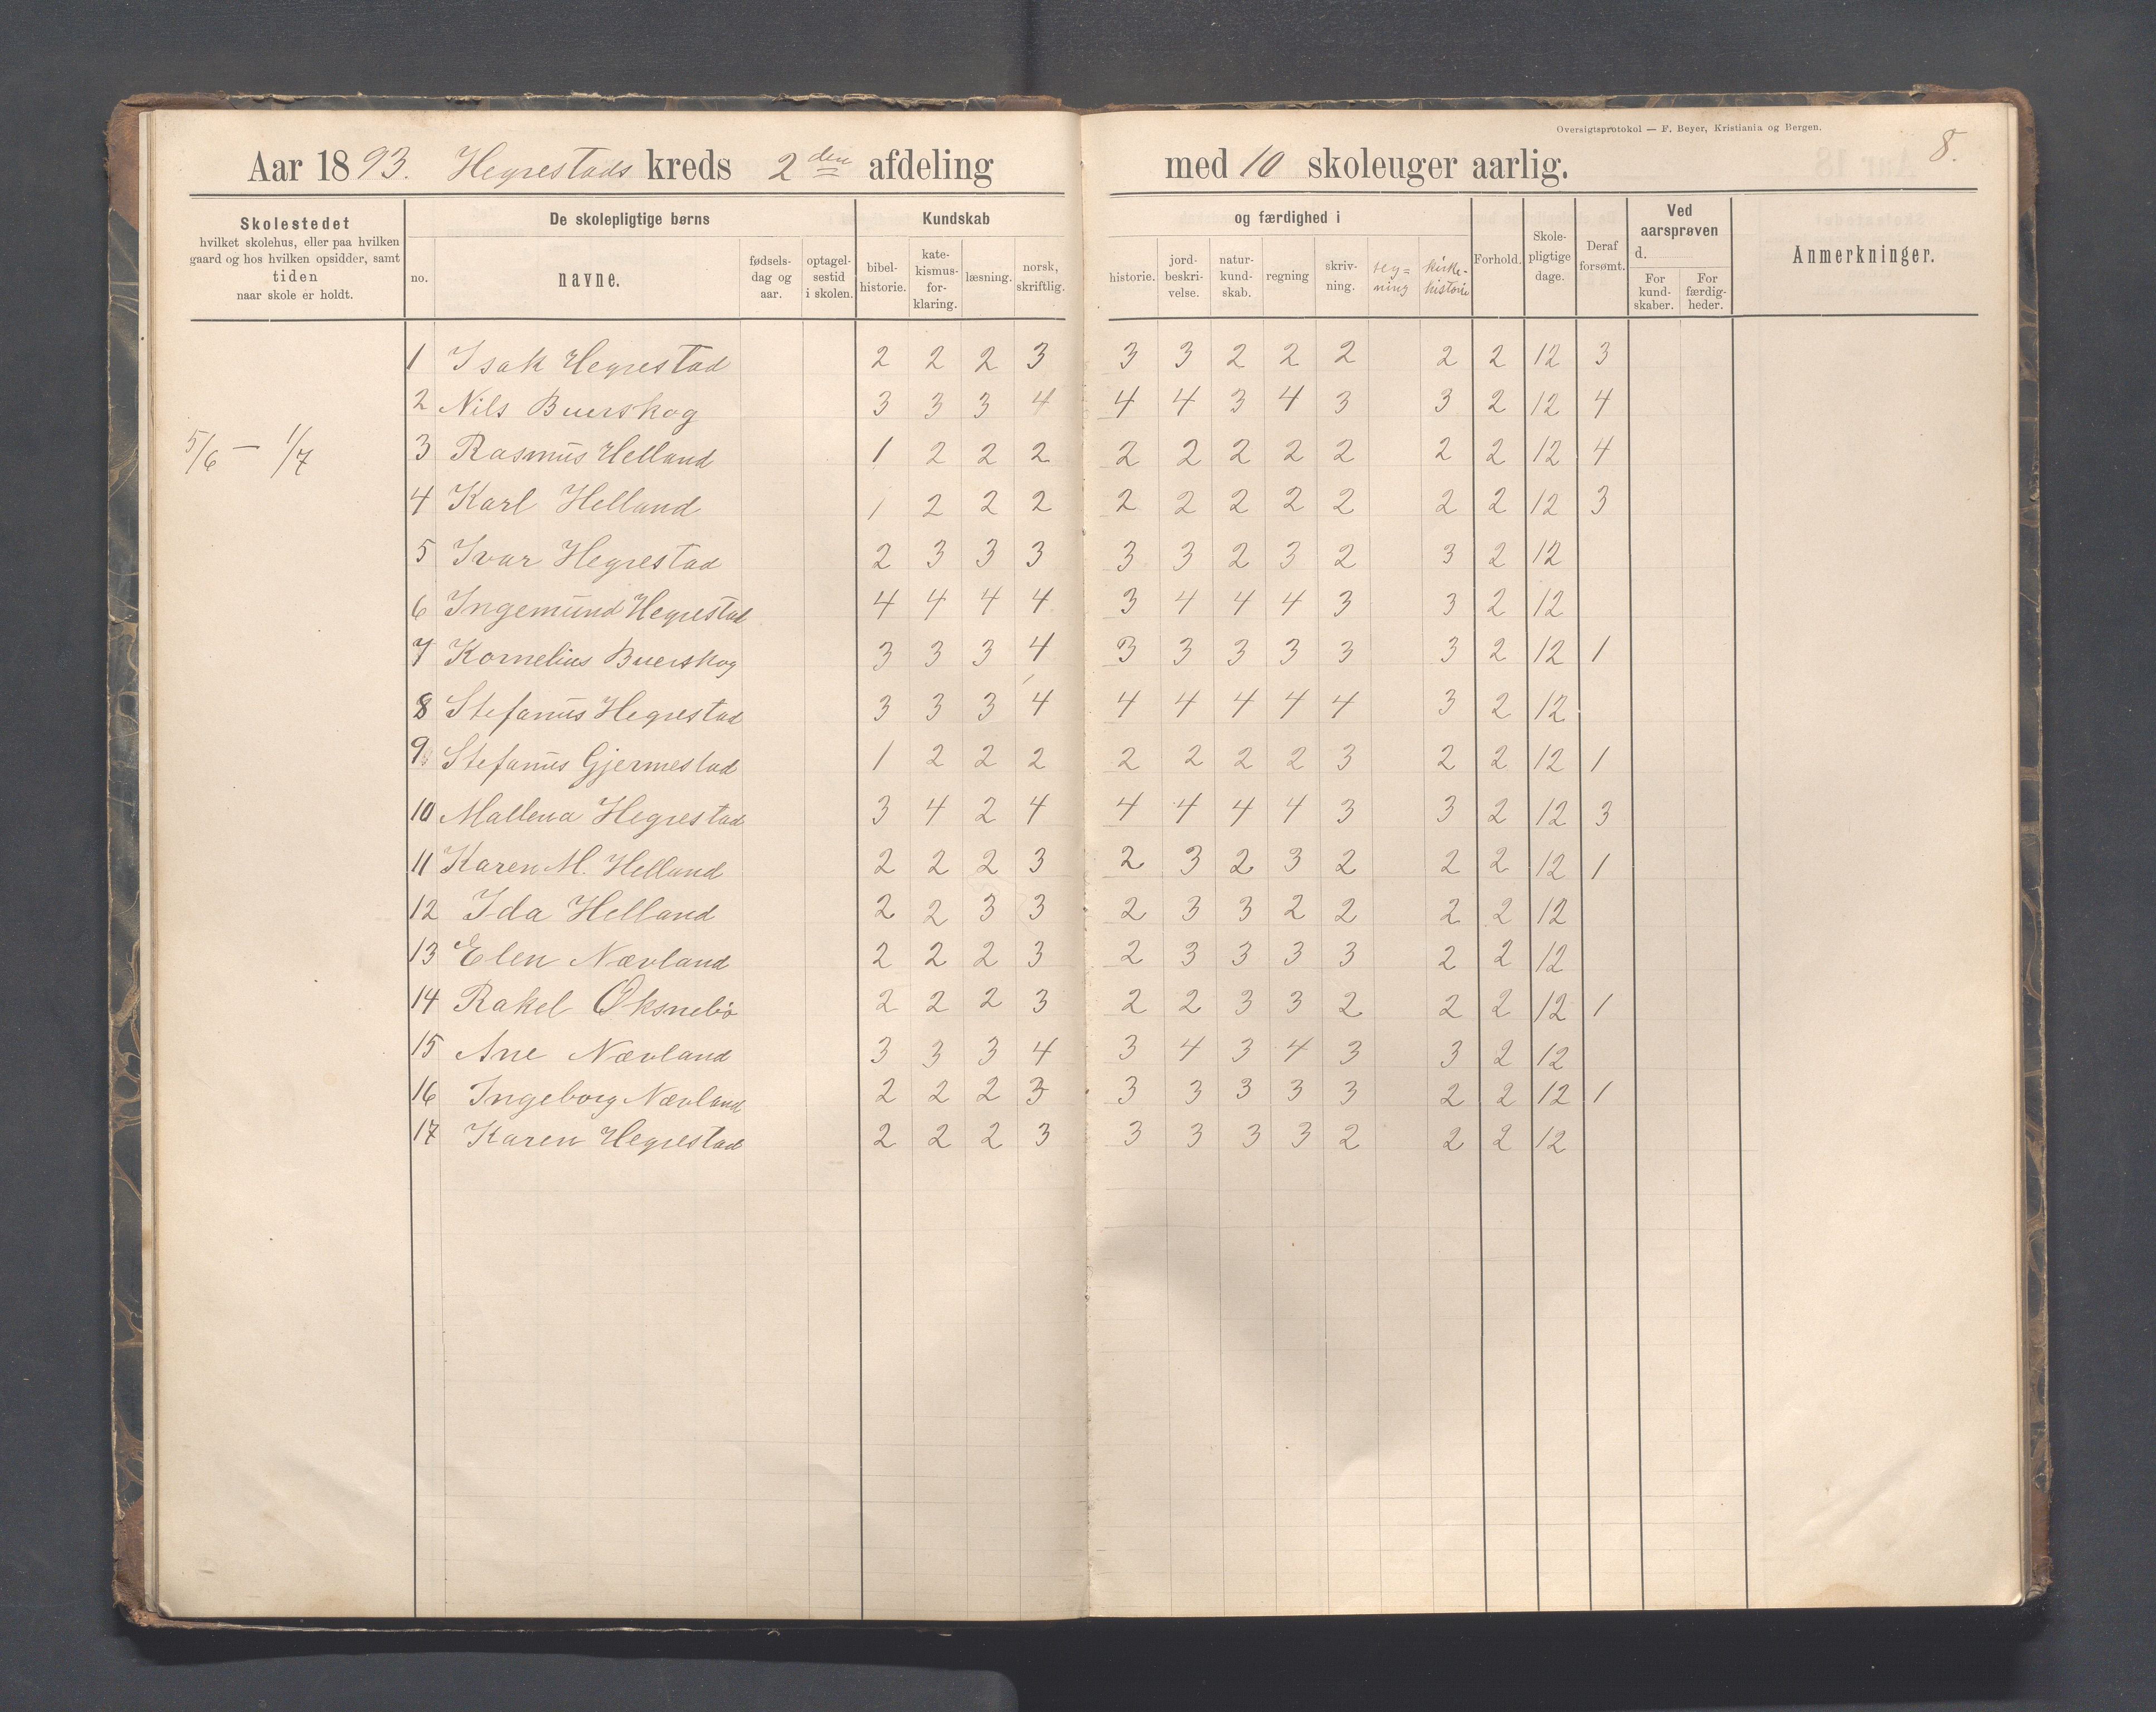 Oversigtsprotokol — F. Beyer, Kristiania og Bergen.
8.
Aar 1893. Hegrestads kreds 2den afdeling med 10 skoleuger aarlig.
Skolestedet hvilket skolehus, eller paa hvilken gaard og hos hvilken opsidder, samt tiden naar skole er holdt.
De skolepligtige børns
no. navne. fødselsdag og aar. optagelsestid i skolen.
Kundskab og færdighed i
bibelhistorie. katekismusforklaring. læsning. norsk, skriftlig. historie. jordbeskrivelse. naturkundskab. regning skrivning. tegning kirkehistorie
Forhold. Skolepligtige dage. Deraf forsømt.
Ved aarsprøven d.
For kundskaber. For færdigheder.
Anmerkninger.
1 Isak Hegrestad 2 2 2 3 3 3 2 2 2 2 2 12 3
2 Nils Buerskog 3 3 3 4 4 4 3 4 3 3 2 12 4
5/6 — 1/7
3 Rasmus Helland 1 2 2 2 2 2 2 2 2 2 2 12 4
4 Karl Helland 1 2 2 2 2 2 2 2 2 2 2 12 3
5 Ivar Hegrestad 2 3 3 3 3 3 2 3 2 3 2 12
6 Ingemund Hegrestad 4 4 4 4 3 4 4 4 3 3 2 12
7 Kornelius Buerskog 3 3 3 4 3 3 3 3 3 3 2 12 1
8 Stefanus Hegrestad 3 3 3 4 4 4 4 4 4 3 2 12
9 Stefanus Gjermestad 1 2 2 2 2 2 2 2 3 2 2 12 1
10 Mallena Hegrestad 3 4 2 4 4 4 4 4 3 3 2 12 3
11 Karen M. Helland 2 2 2 3 2 3 2 3 2 2 2 12 1
12 Ida Helland 2 2 3 3 2 3 3 2 2 2 2 12
13 Elen Nævland 2 2 2 3 2 3 3 3 3 2 2 12
14 Rakel Øksnebø 2 2 2 3 2 2 3 3 2 2 2 12 1
15 Ane Nævland 3 3 3 4 3 4 3 4 3 3 2 12
16 Ingeborg Nævland 2 2 2 3 3 3 3 3 3 2 2 12 1
17 Karen Hegrestad 2 2 2 3 3 3 3 3 2 2 2 12